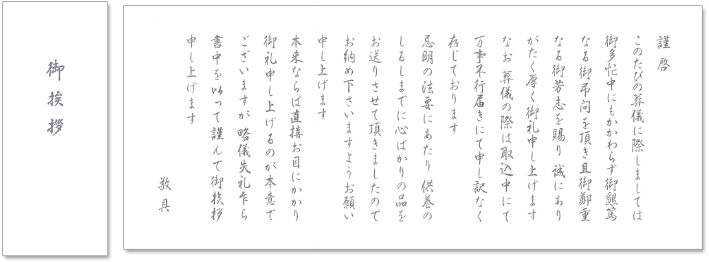 御挨拶
謹啓
このたびの葬儀に際しましては
御多忙中にもかかわらず御懇篤
なる御弔問を頂き且御鄭重
なる御芳志を賜り 誠にあり
がたく厚く御礼申し上げます
なお 葬儀の際は取込中にて
万事不行届きにて申し訳なく
存じております
忌明の法要にあたり 供養の
しるしまでに心ばかりの品を
お送りさせて頂きましたので
お納め下さいますようお願い
申し上げます
本来ならば直接お目にかかり
御礼申し上げるのが本意で
ございますが 略儀失礼乍ら
書中を以って謹んで御挨拶
申し上げます
敬具